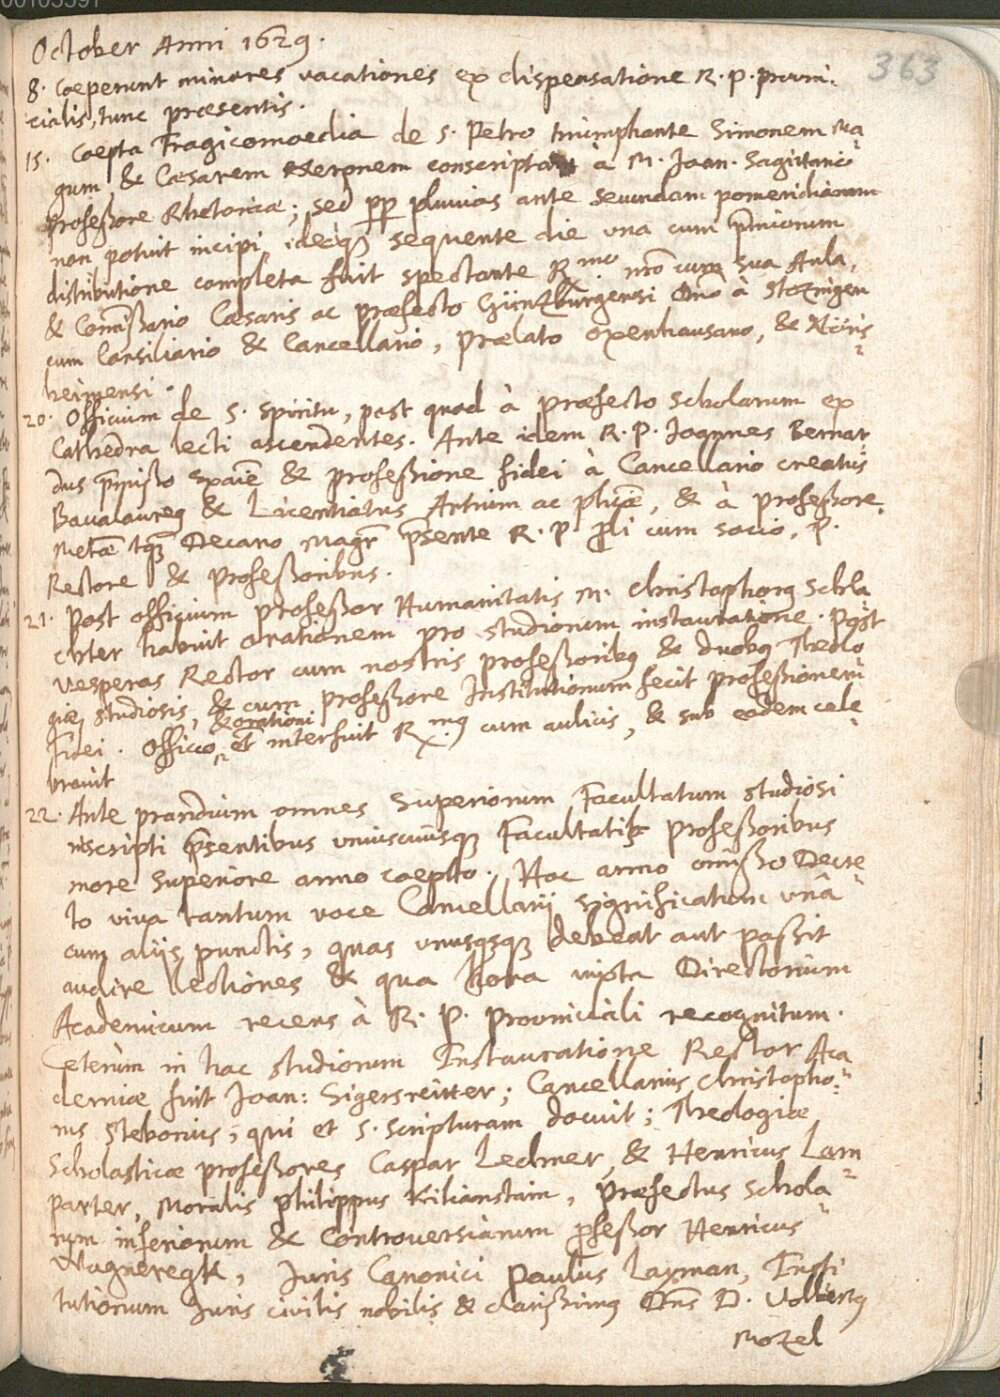 00105391
363
October Anni 1629.
8. Coeperunt minores vacationes ex dispensatione R. P. provin:
cialis, tunc praesentis.
15. Coepta Tragicomoedia de S. Petro triumphante Simonem Ma
gum & Caesarem Neronem conscripta à M. Joan. Sagittario
Professore Rhetoricae; sed ppp pluvias ante secundam pomeridianam
non potuit incipi, ideoq3 sequente die una cum p̄miorum
distributione completa fuit spectante Rmo. nr̃o cum sua Aula,
& Com̃issario Caesaris ac praefecto Günzburgensi Dño à Stozingen
cum Consiliario & Cancellario, Praelato Oxenhausano, &
heimensi.
20. Officium de S. Spiritu, post quod à praefecto Scholarum ex
Cathedra lecti ascendentes. Ante idem R. P. Joannes Bernar
dus p̄misso & professione fidei à Cancellario creatus
Baccalaureg & Licentiatus Artium ac phicae, & à professore
Metae tq̃ Decano Magr p̄sente R. P. P̃li cum socio, P.
Rectore & professoribus.
21. Post officium professor Humanitatis M. Christophorg Schla
chter habuit orationem pro studiorum instauratione. Post
vesperas Rector cum nostris professoribg & duobg Theolo
giae studiosis, & cum professore Institutionum fecit professionem
& orationi
fidei. Officio et interfuit Rmg cum aulicis, & sub eodem cele
bravit
22. Ante prandium omnes Superiorum Facultatum studiosi
inscripti p̄sentibus uniuscuiusq3 Facultatis professoribus
more superiore anno coepto. Hoc anno omisso Decre
to viva tantum voce Cancellarij significatum unâ
cum alijs punctis, quas unusqsq3 debeat aut possit
audire lectiones & qua hora iuxta Directorium
Academicum recens à R. P. Provinciali recognitum.
Ceterùm in hac studiorum Instauratione Rector Aca
demiae fuit Joan: Sigersreitter; Cancellarius Christopho=
rus Steborius, qui et S. Scripturam docuit; Theologiae
Scholasticae professores Caspar Lechner, & Henricus Lam
parter, Moralis Philippus Kilianstain, Praefectus Schola=
rum inferiorum & Controversiarum p̄fessor Henricus
Wagneregkh, Juris Canonici Paulus Layman, Insti
tutionum Juris civilis nobilis & clarissimg Dñs D. Volkertg
Mozel